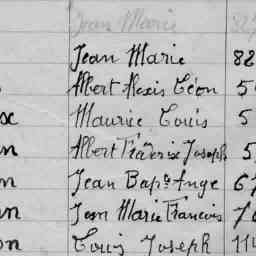 Jean Marie
Jean Marie 82
Albert Alexis Léon 5
Maurice Louis 5
Albert Fréderix Joseph 5
n Jean Bapte Ange 67
n Jean Marie Francois 7
on Louis Joseph 114